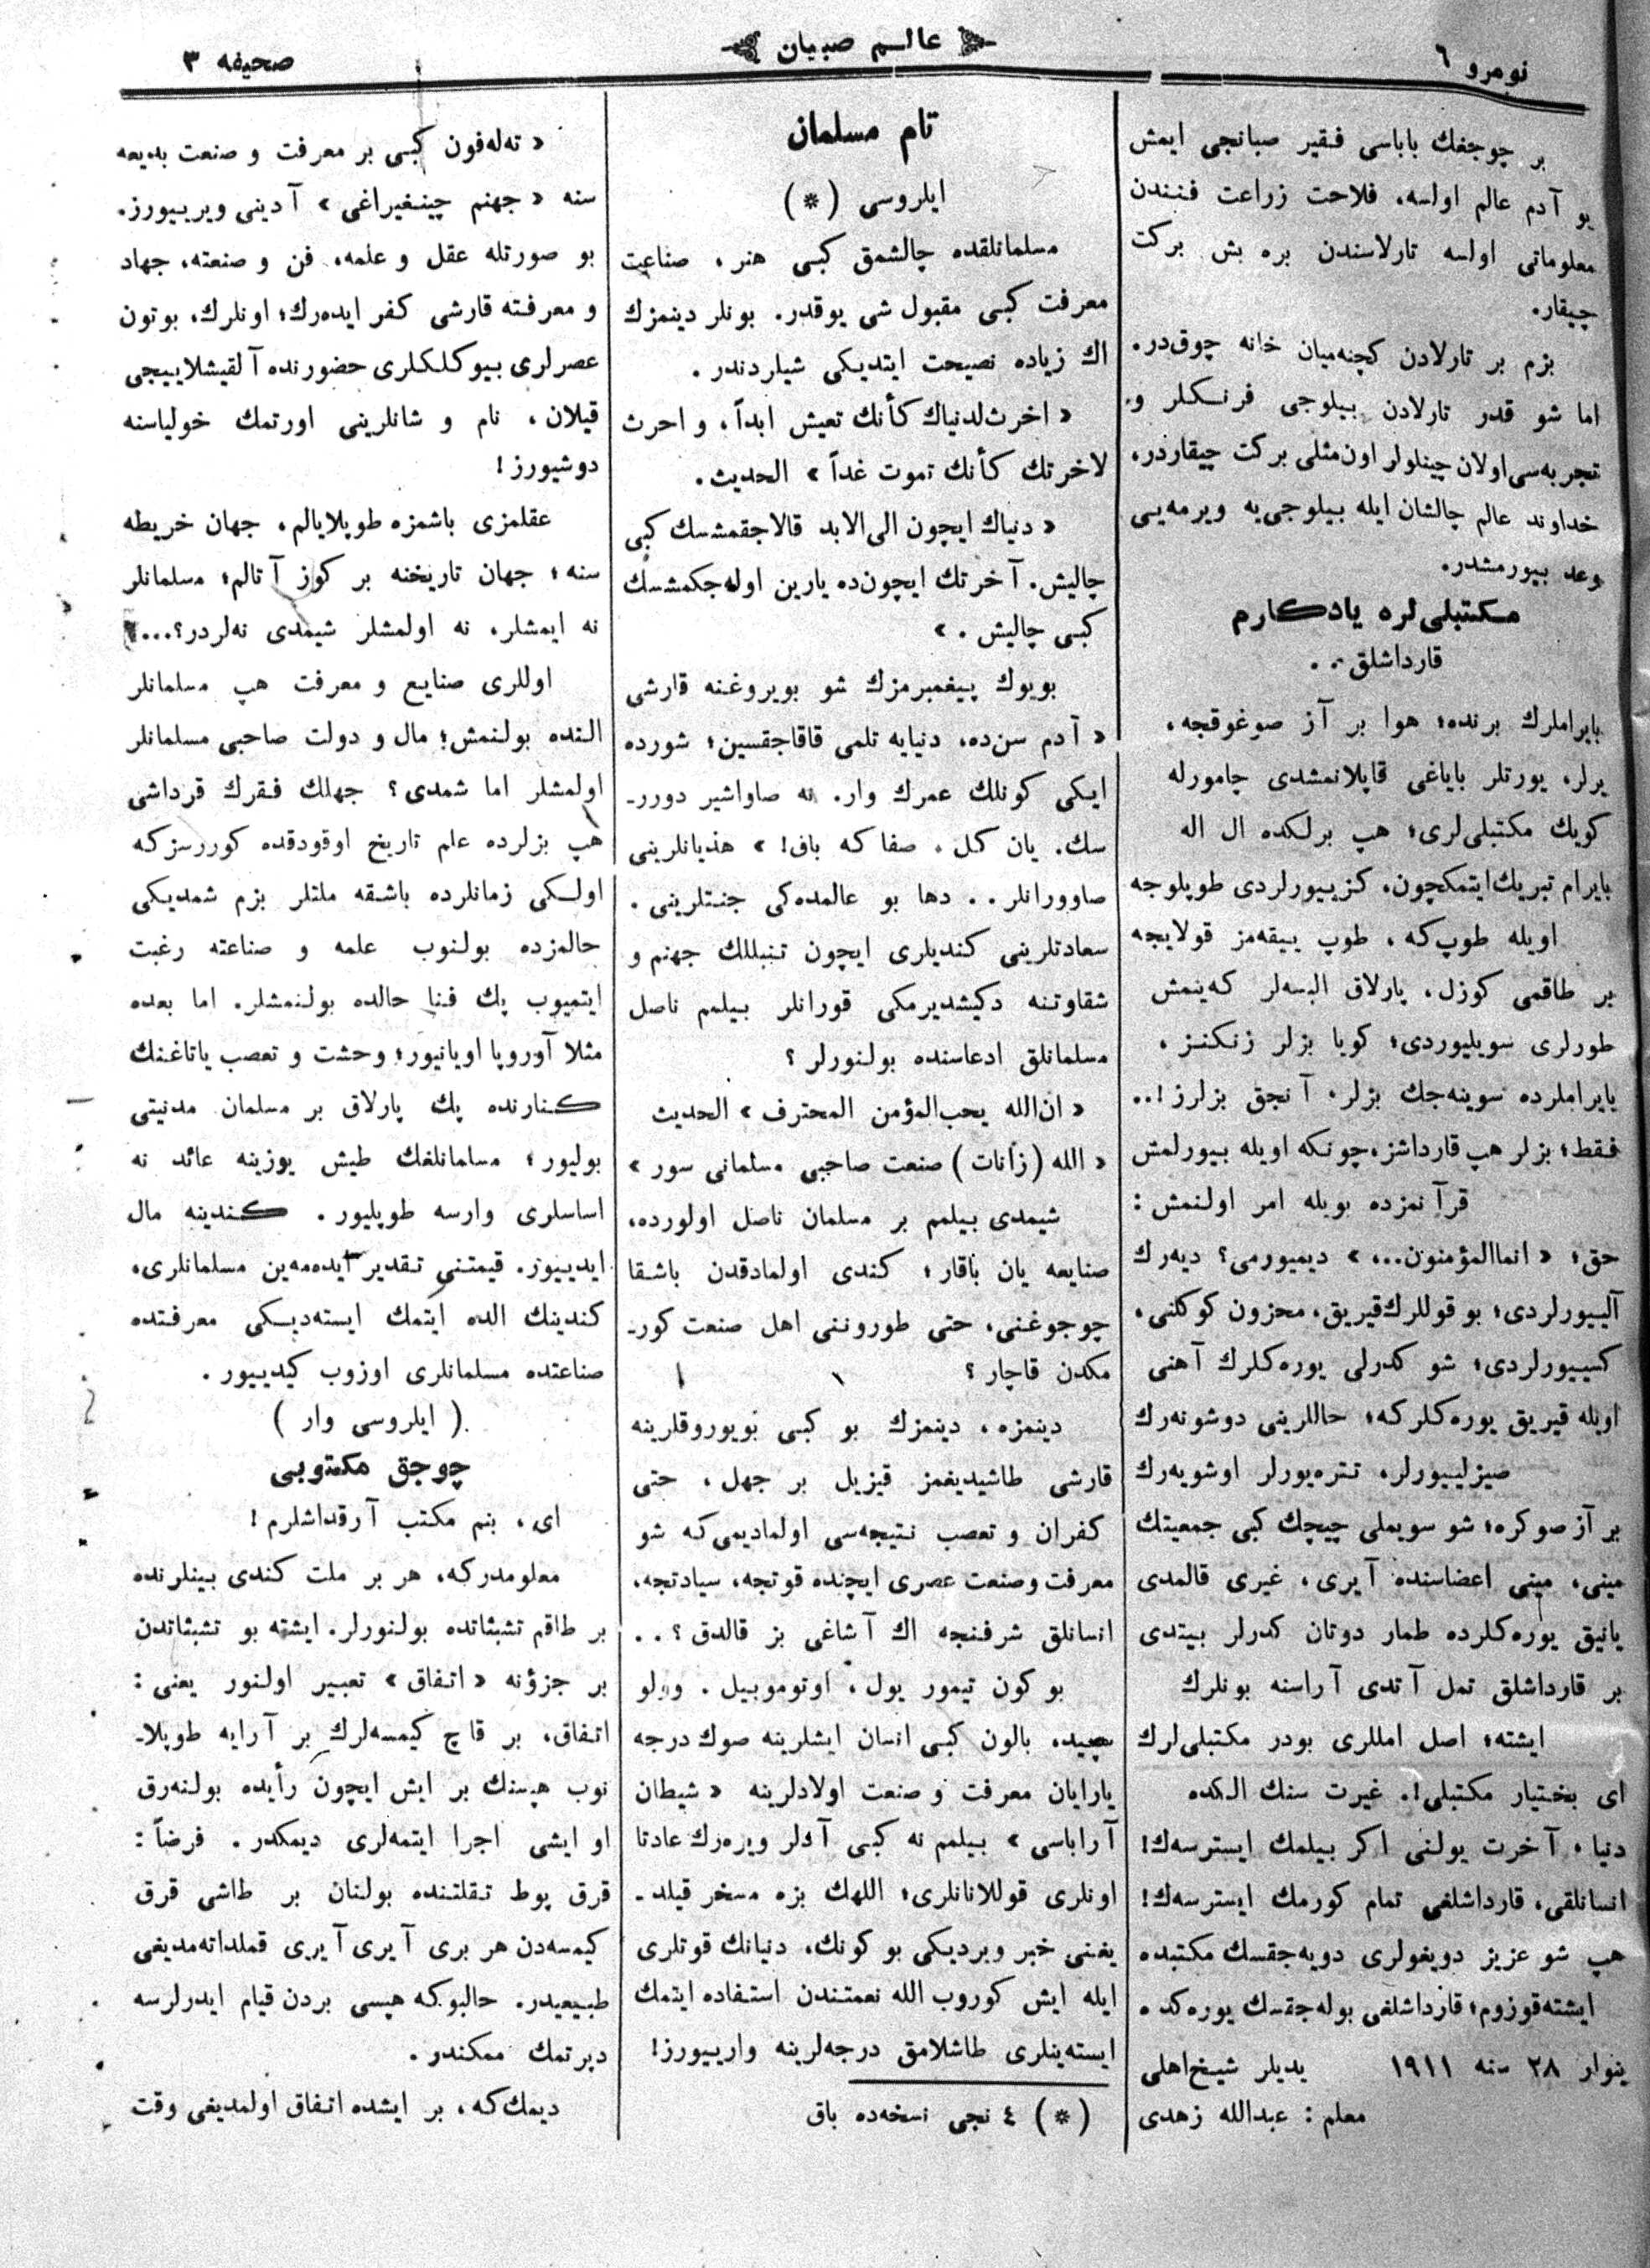 نومرو ٦
عالم صبيان
صحيفه ٣
بر چوجغك باباسى فقير صبانجى ايمش
بو آدم عالم اولسه، فلاحت زراعت فنندن
معلوماتى اولسه تارلاسندن بره بش بركت
چيقار.
بزم بر تارلادن كچنه‌ميان خانه چوق‌در.
اما شو قدر تارلادن بيلوجى فرنكلر و
تجربه‌سى اولان چينلولر اون‌مثلى بركت چيقاردر،
خداوند عالم چالشان ايله بيلوجى‌يه ويرمه‌يى
وعد بيورمشدر.
مكتبلى‌لره يادكارم
قارداشلق . .
بايراملرك برنده؛ هوا بر آز صوغوقچه،
يرلر، يورتلر باياغى قاپلانمشدى چامورله
كويك مكتبلى‌لرى؛ هپ برلكده ال اله
بايرام تبريك‌ايتمكچون، كزييورلردى طوپلوجه
اويله طوپ‌كه، طوپ ييقه‌مز قولايجه
بر طاقمى كوزل، پارلاق البسه‌لر كه‌ينمش
طورلرى سويليوردى؛ كويا بزلر زنكنز،
بايراملرده سوينه‌جك بزلر، آنجق بزلرز!..
فقط؛ بزلر هپ قارداشز، چونكه اويله بيورلمش
قرآ نمزده بويله امر اولنمش :
حق؛ « انماالمؤمنون...، » ديميورمى؟ ديه‌رك
آلييورلردى؛ بو قوللرك‌قيريق، محزون كوكلنى،
كسييورلردى؛ شو كدرلى يوره‌كلرك آهنى
اويله قيريق يوره‌كلركه؛ حاللرينى دوشونه‌رك
صيزلييورلر، تتره‌يورلر اوشويه‌رك
بر آز صوكره؛ شو سويملى چيچك كبى جمعيتك
مينى، مينى اعضاسنده آيرى، غيرى قالمدى
يانيق يوره‌كلرده طمار دوتان كدرلر بيتدى
بر قارداشلق تمل آتدى آراسنه بونلرك
ايشته؛ اصل امللرى بودر مكتبلى‌لرك
اى بختيار مكتبلى!. غيرت سنك الكده
دنيا، آخرت يولنى اكر بيلمك ايسترسه‌ك!
انسانلقى، قارداشلغى تمام كورمك ايسترسه‌ك!
هپ شو عزيز دويغولرى دويه‌جقسك مكتبده
ايشته‌قوزوم؛ قارداشلغى بوله‌جقسك يوره‌كده
ينوار ٢٨ سنه ١٩١١ يديلر شيخ‌اهلى
معلم : عبدالله زهدى
تام مسلمان
ايلروسى (*)
مسلمانلقده چالشمق كبى هنر، صناعت
معرفت كبى مقبول شى يوقدر. بونلر دينمزك
اك زياده نصيحت ايتديكى شيلردندر.
« اخرث‌لدنياك كأنك تعيش ابداً، و احرث
لاخرتك كأنك تموت غداً » الحديث.
« دنياك ايچون الى‌الابد قالاجقمشسك كبى
چاليش. آخرتك ايچون‌ده يارين اوله‌جكمشسك
كبى چاليش. »
بويوك پيغمبرمزك شو بويروغنه قارشى
« آدم سن‌ده، دنيايه تلمى قاقاجقسين؛ شورده
ايكى كونلك عمرك وار. نه صاواشير دورر-
سك. يان كل، صفا كه باق! » هذيانلرينى
صاوورانلر.. دها بو عالمده‌كى جنتلرينى.
سعادتلرينى كنديلرى ايچون تنبللك جهنم و
شقاوتنه دكيشديرمكى قورانلر بيلمم ناصل
مسلمانلق ادعاسنده بولنورلر؟
« ان‌الله يحب‌المؤمن المحترف » الحديث
« الله (زانات) صنعت صاحبى مسلمانى سور »
شيمدى بيلمم بر مسلمان ناصل اولورده،
صنايعه يان باقار؛ كندى اولمادقدن باشقا
چوجوغنى، حتى طوروننى اهل صنعت كور-
مكدن قاچار؟
دينمزه، دينمزك بو كبى بويوروقلرينه
قارشى طاشيديغمز قيزيل بر جهل، حتى
كفران و تعصب نتيجه‌سى اولماديمى‌كه شو
معرفت وصنعت عصرى ايچنده قوتجه، سيادتجه،
انسانلق شرفنجه اك آشاغى بز قالدق؟..
بو كون تيمور يول، اوتوموبيل. ولو
سپيد، بالون كبى انسان ايشلرينه صوك درجه
يارايان معرفت و صنعت اولادلرينه « شيطان
آراباسى » بيلمم نه كبى آدلر ويره‌رك عادتا
اونلرى قوللانانلرى؛ اللهك بزه مسخر قيلد-
يغنى خبر ويرديكى بو كونك، دنيانك قوتلرى
ايله ايش كوروب الله نعمتندن استفاده ايتمك
ايسته‌ينلرى طاشلامق درجه‌لرينه وارييورز!
(*) ٤ نجى نسخه‌ده باق
« ته‌له‌فون كبى بر معرفت و صنعت بديعه
سنه « جهنم چينغيراغى » آدينى ويرييورز.
بو صورتله عقل و علمه، فن و صنعته، جهاد
و معرفته قارشى كفر ايده‌رك؛ اونلرك، بوتون
عصرلرى بيوكلكلرى حضورنده آلقيشلاييجى
قيلان، نام و شانلرينى اورتمك خولياسنه
دوشيورز!
عقلمزى باشمزه طوپلايالم، جهان خريطه
سنه؛ جهان تاريخنه بر كوز آتالم؛ مسلمانلر
نه ايمشلر، نه اولمشلر شيمدى نه‌لردر؟...
اوللرى صنايع و معرفت هپ مسلمانلر
النده بولنمش؛ مال و دولت صاحبى مسلمانلر
اولمشلر اما شمدى؟ جهلك فقرك قرداشى
هپ بزلرده علم تاريخ اوقودقده كوررسزكه
اولكى زمانلرده باشقه ملتلر بزم شمديكى
حالمزده بولنوب علمه و صناعته رغبت
ايتميوب پك فنا حالده بولنمشلر. اما بعده
مثلا آوروپا اويانيور؛ وحشت و تعصب ياتاغنك
كنارنده پك پارلاق بر مسلمان مدنيتى
بوليور؛ مسلمانلغك طيش يوزينه عائد نه
اساسلرى وارسه طوپليور. كندينه مال
ايدييوز. قيمتنى تقدير ايده‌مه‌ين مسلمانلرى،
كندينك الده ايتمك ايسته‌ديكى معرفتده
صناعتده مسلمانلرى اوزوب كيدييور.
( ايلروسى وار )
چوجق مكتوبى
اى، بنم مكتب آرقداشلرم!
معلومدركه، هر بر ملت كندى بينلرنده
بر طاقم تشبثاتده بولنورلر. ايشته بو تشبثاتدن
بر جزؤنه « اتفاق » تعبير اولنور يعنى :
اتفاق، بر قاچ كيمسه‌لرك بر آرايه طوپلا-
نوب هپسنك بر ايش ايچون رأيده بولنه‌رق
او ايشى اجرا ايتمه‌لرى ديمكدر. فرضاً :
قرق پوط ثقلتنده بولنان بر طاشى قرق
كيمسه‌دن هر برى آيرى آيرى قملداته‌مديغى
طبيعيدر. حالبوكه هپسى بردن قيام ايدرلرسه
ديرتمك ممكندر.
ديمك‌كه، بر ايشده اتفاق اولمديغى وقت